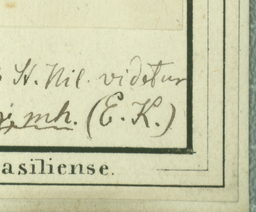 St. Hil. videtur
mh. (E. K.)
asiliense.